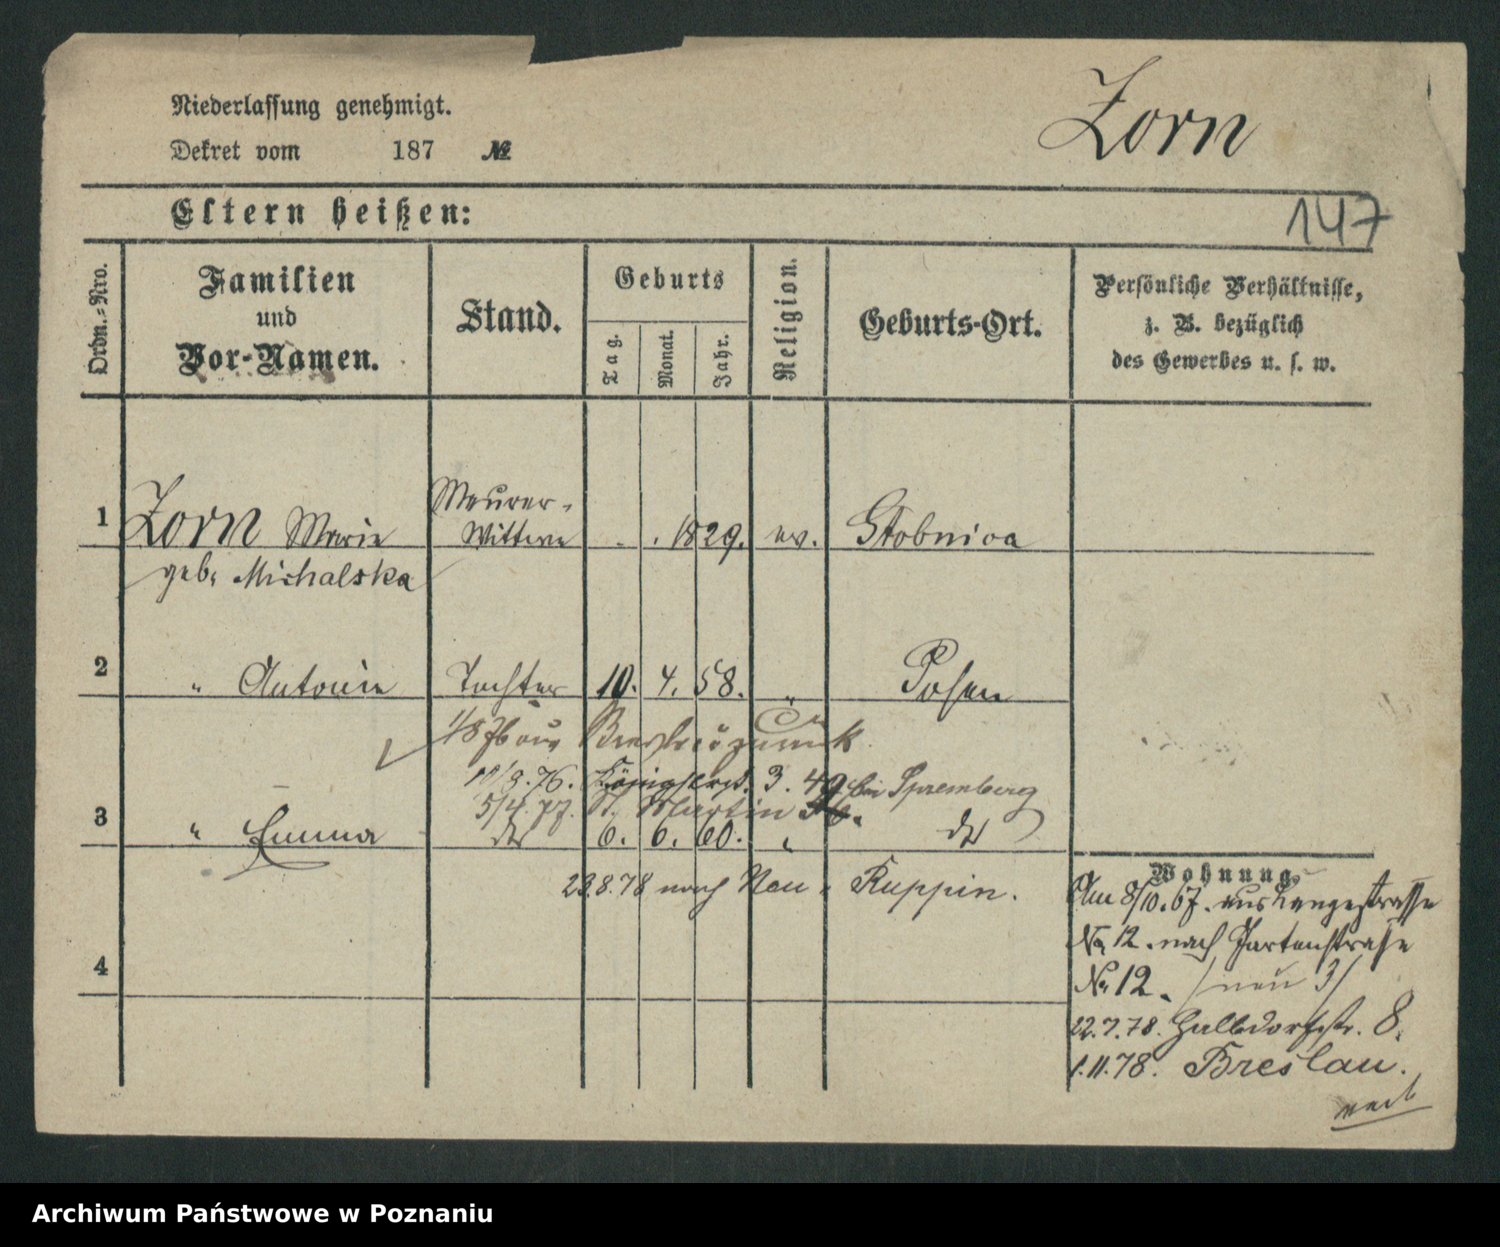 Niederlassung genehmigt.
Dekret vom 187 №
Zorn
Eltern heißen:
147
Ordn.-Nro.
Familien
und
Vor-Namen.
Stand.
Geburts
Tag.
Monat.
Jahr.
Religion.
Geburts-Ort.
Persönliche Verhältnisse,
z. B. bezüglich
des Gewerbes u. s. w.
1 Zorn Marie Maurer-Wittwe 1829. ev. Stobnica
geb. Michalska
2 " Antonie Tochter 10. 4. 58. " Posen
1/8 76 aus
11/9. 76. Königstraße 3. 49 bei Spremberg
5/4. 77. St. Martin
3 " Emma do 6. 6. 60. " do
23.8.78 nach Neu-Ruppin.
4
Wohnung
Am 8/10. 67. aus Langestrasse
No 12. nach Gartenstraße
No 12. /neu 3/
22.7.78. Halbdorfstr. 8.
1.11.78. Breslau.